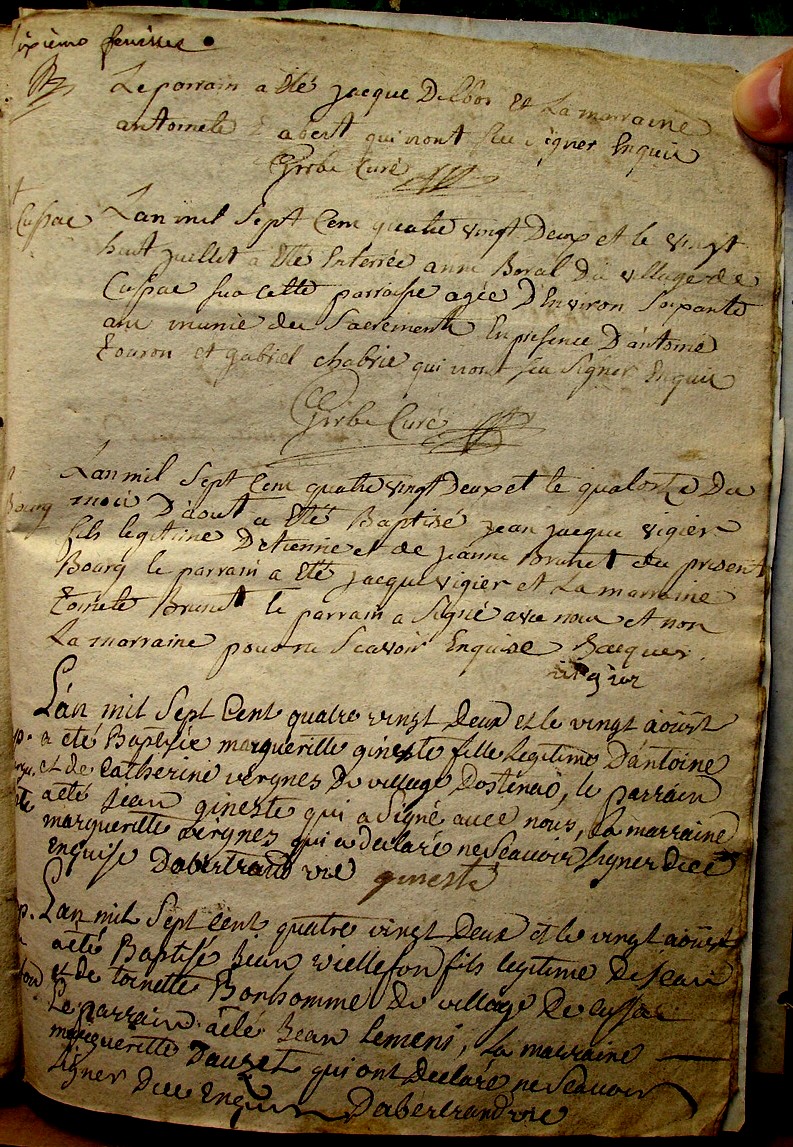 sixieme feuille
Le parrain a été jacque Delbos et La marraine
antoinete abert qui nont seu signer Enquis
Girbe Curé
Cussac Lan mil Sept Cent quatre vingt Deux et le vingt
huit juillet a été Enterrée anne Boral Du village de
Cussac sus cette parroisse agée D'Environ Soixante
ans munie des Sacrements En presence D'antoine
Touron et gabriel chabrie qui nont seu Signer Enquis
Girbe Curé
Lan mil Sept Cent quatre vingt Deux et le quatorze Du
Bourg mois D'aout a été Baptisé jean jacque vigier
fils legitime D'etienne et de jeanne Brunet du present
Bourg le parrain a été jacque vigier et La marraine
Tomete Brunet le parrain a signé avec nous et non
La marraine pour ne Scavoir Enquise Jacques
vigier
L'an mil Sept Cent quatre vingt Deux et le vingt aoûst
a eté Baptisée marguerille gineste fille legitime D'antoine
et de Catherine vergnes Du village Dostenac, le parrain
a eté Jean gineste qui a Signé avec nous, La marraine
marguerille vergnes qui a declaré ne Scavoir Signer dece
Enquise Dabertrand vic gineste
L'an mil Sept Cent quatre vingt Deux et le vingt aoûst
a eté Baptisé Jean viellefon fils legitime De Jean
et de tornette Bonhomme Du village De Cussac
Le parrain a eté Jean Lemeni, La marraine
marguerille Dauzet qui ont Declaré ne Scavoir
Signer Dece Enquis Dabertrand vic